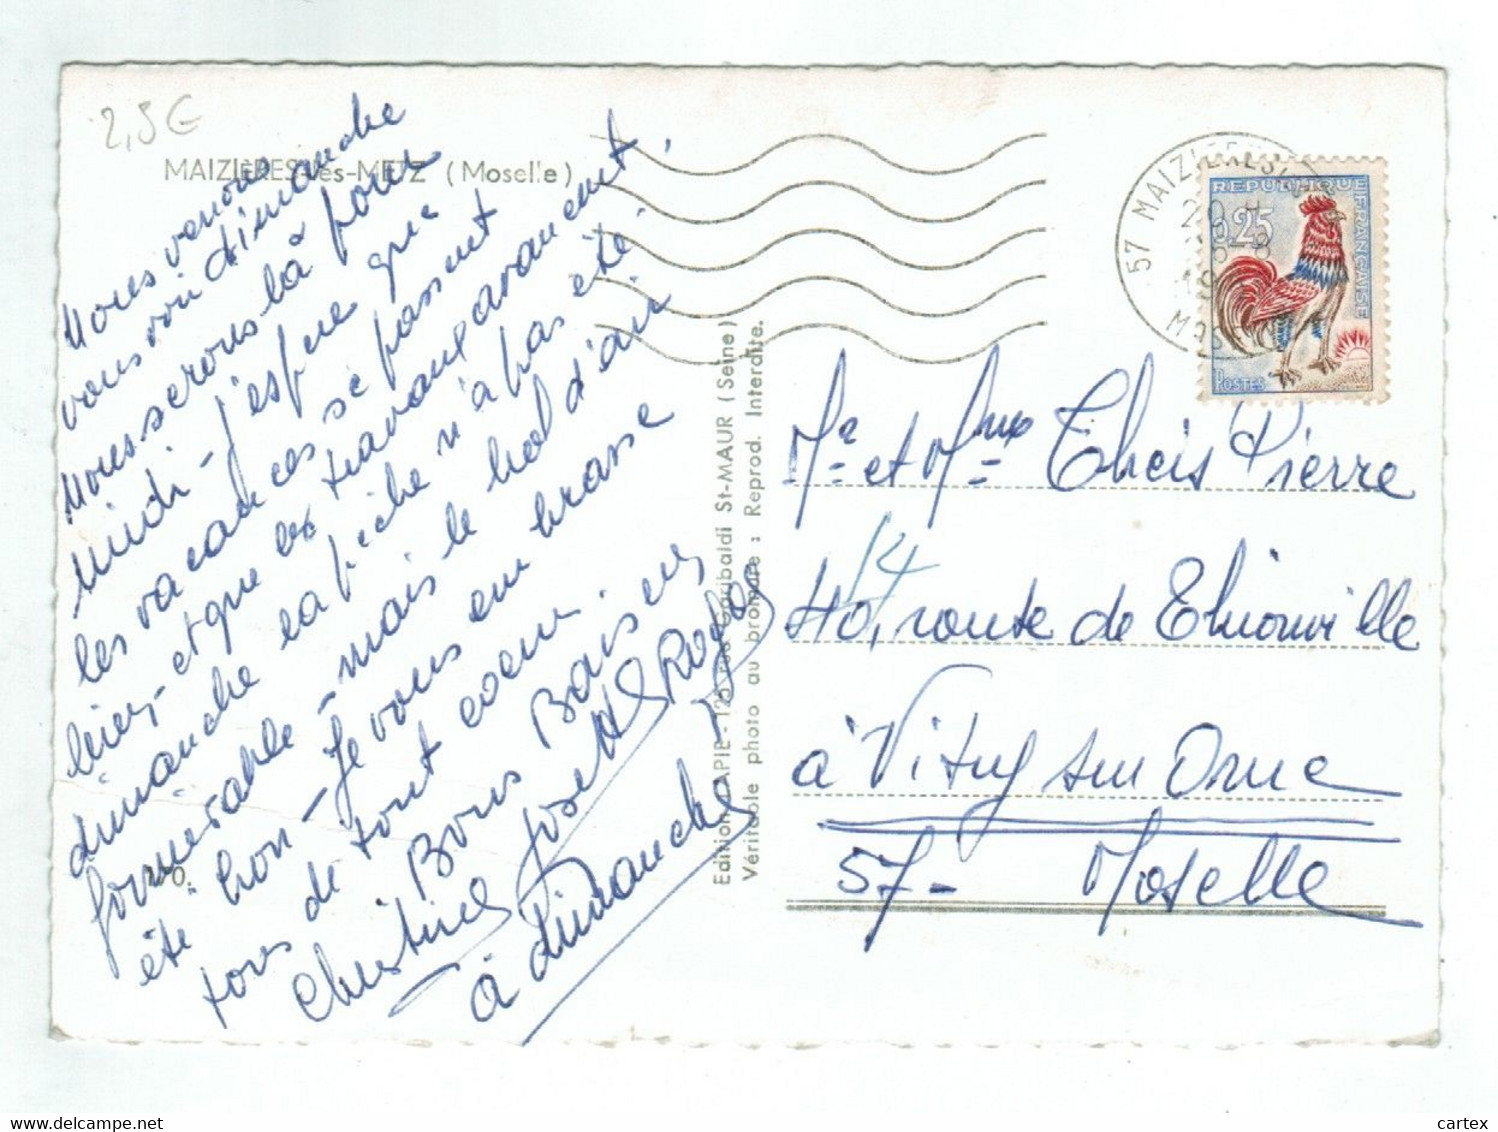 2,5€
MAIZIÈRES-lès-METZ (Moselle)
Nous venons
vous voir dimanche
Nous serons là pour
midi - j'espère que
les vacances se passent
bien, - et que les travaux avancent.
dimanche la pêche n'a pas été
formidable - mais le bol d'air
été bon - Je vous embrasse
tous de tout coeur.
Bons Baisers
Christine Josette Roger
à dimanche
Edition LAPIE - 126 rue Garibaldi St-MAUR (Seine)
Véritable photo au bromure : Reprod. Interdite.
57 MAIZIERES
20 H
MOSELLE
REPUBLIQUE FRANÇAISE
0,25
POSTES
Mr et Mme Theis Pierre
14
40, route de Thionville
à Vitry sur Orne
57 - Moselle
cartex